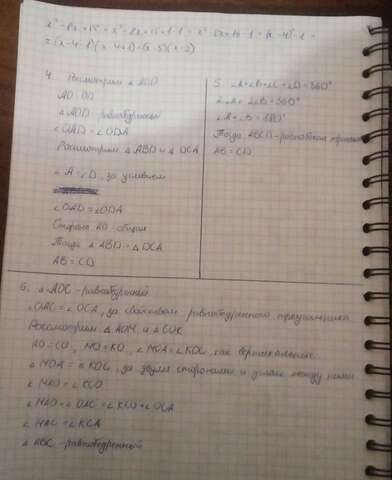 x² - 8x + 15 = x² - 8x + 15 + 1 - 1 = x² - 8x + 16 - 1 = (x - 4)² - 1 =
= (x - 4 - 1)(x - 4 + 1) = (x - 5)(x - 3)
4. Рассмотрим △ AOD
AO = OD
△ AOD - равнобедренный
∠OAD = ∠ODA
Рассмотрим △ ABD и △ DCA
∠A = ∠D, за условием
∠OAD = ∠ODA
Сторона AD - общая
Тогда △ ABD = △ DCA
AB = CD
5. ∠A+∠B+∠C+∠D=360°
2∠A + 2∠B = 360°
∠A + ∠B = 180°
Тогда ABCD - равнобокая
AB = CD
6. △ AOC - равнобедренный
∠OAC = ∠OCA, за свойством равнобедренного треугольника
Рассмотрим △ AOM и △ COK
AO = CO, MO = KO, ∠MOA = ∠KOC, как вертикальные
△ MOA = △ KOC, за двумя сторонами и углом между ними
∠ MAO = ∠ KCO
∠ MAO + ∠ OAC = ∠ KCO + ∠ OCA
∠ MAC = ∠ KCA
△ ABC - равнобедренный